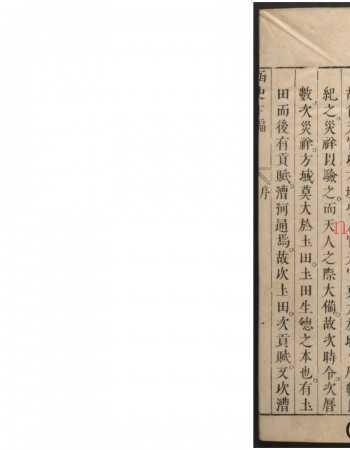 紀之災祥以驗之而天人之際大備故次時令次曆
數次災祥方域莫大於土田土田生德之本也有土
田而後有貢賦漕河通焉故次土田次貢賦又次漕
函史下編
序